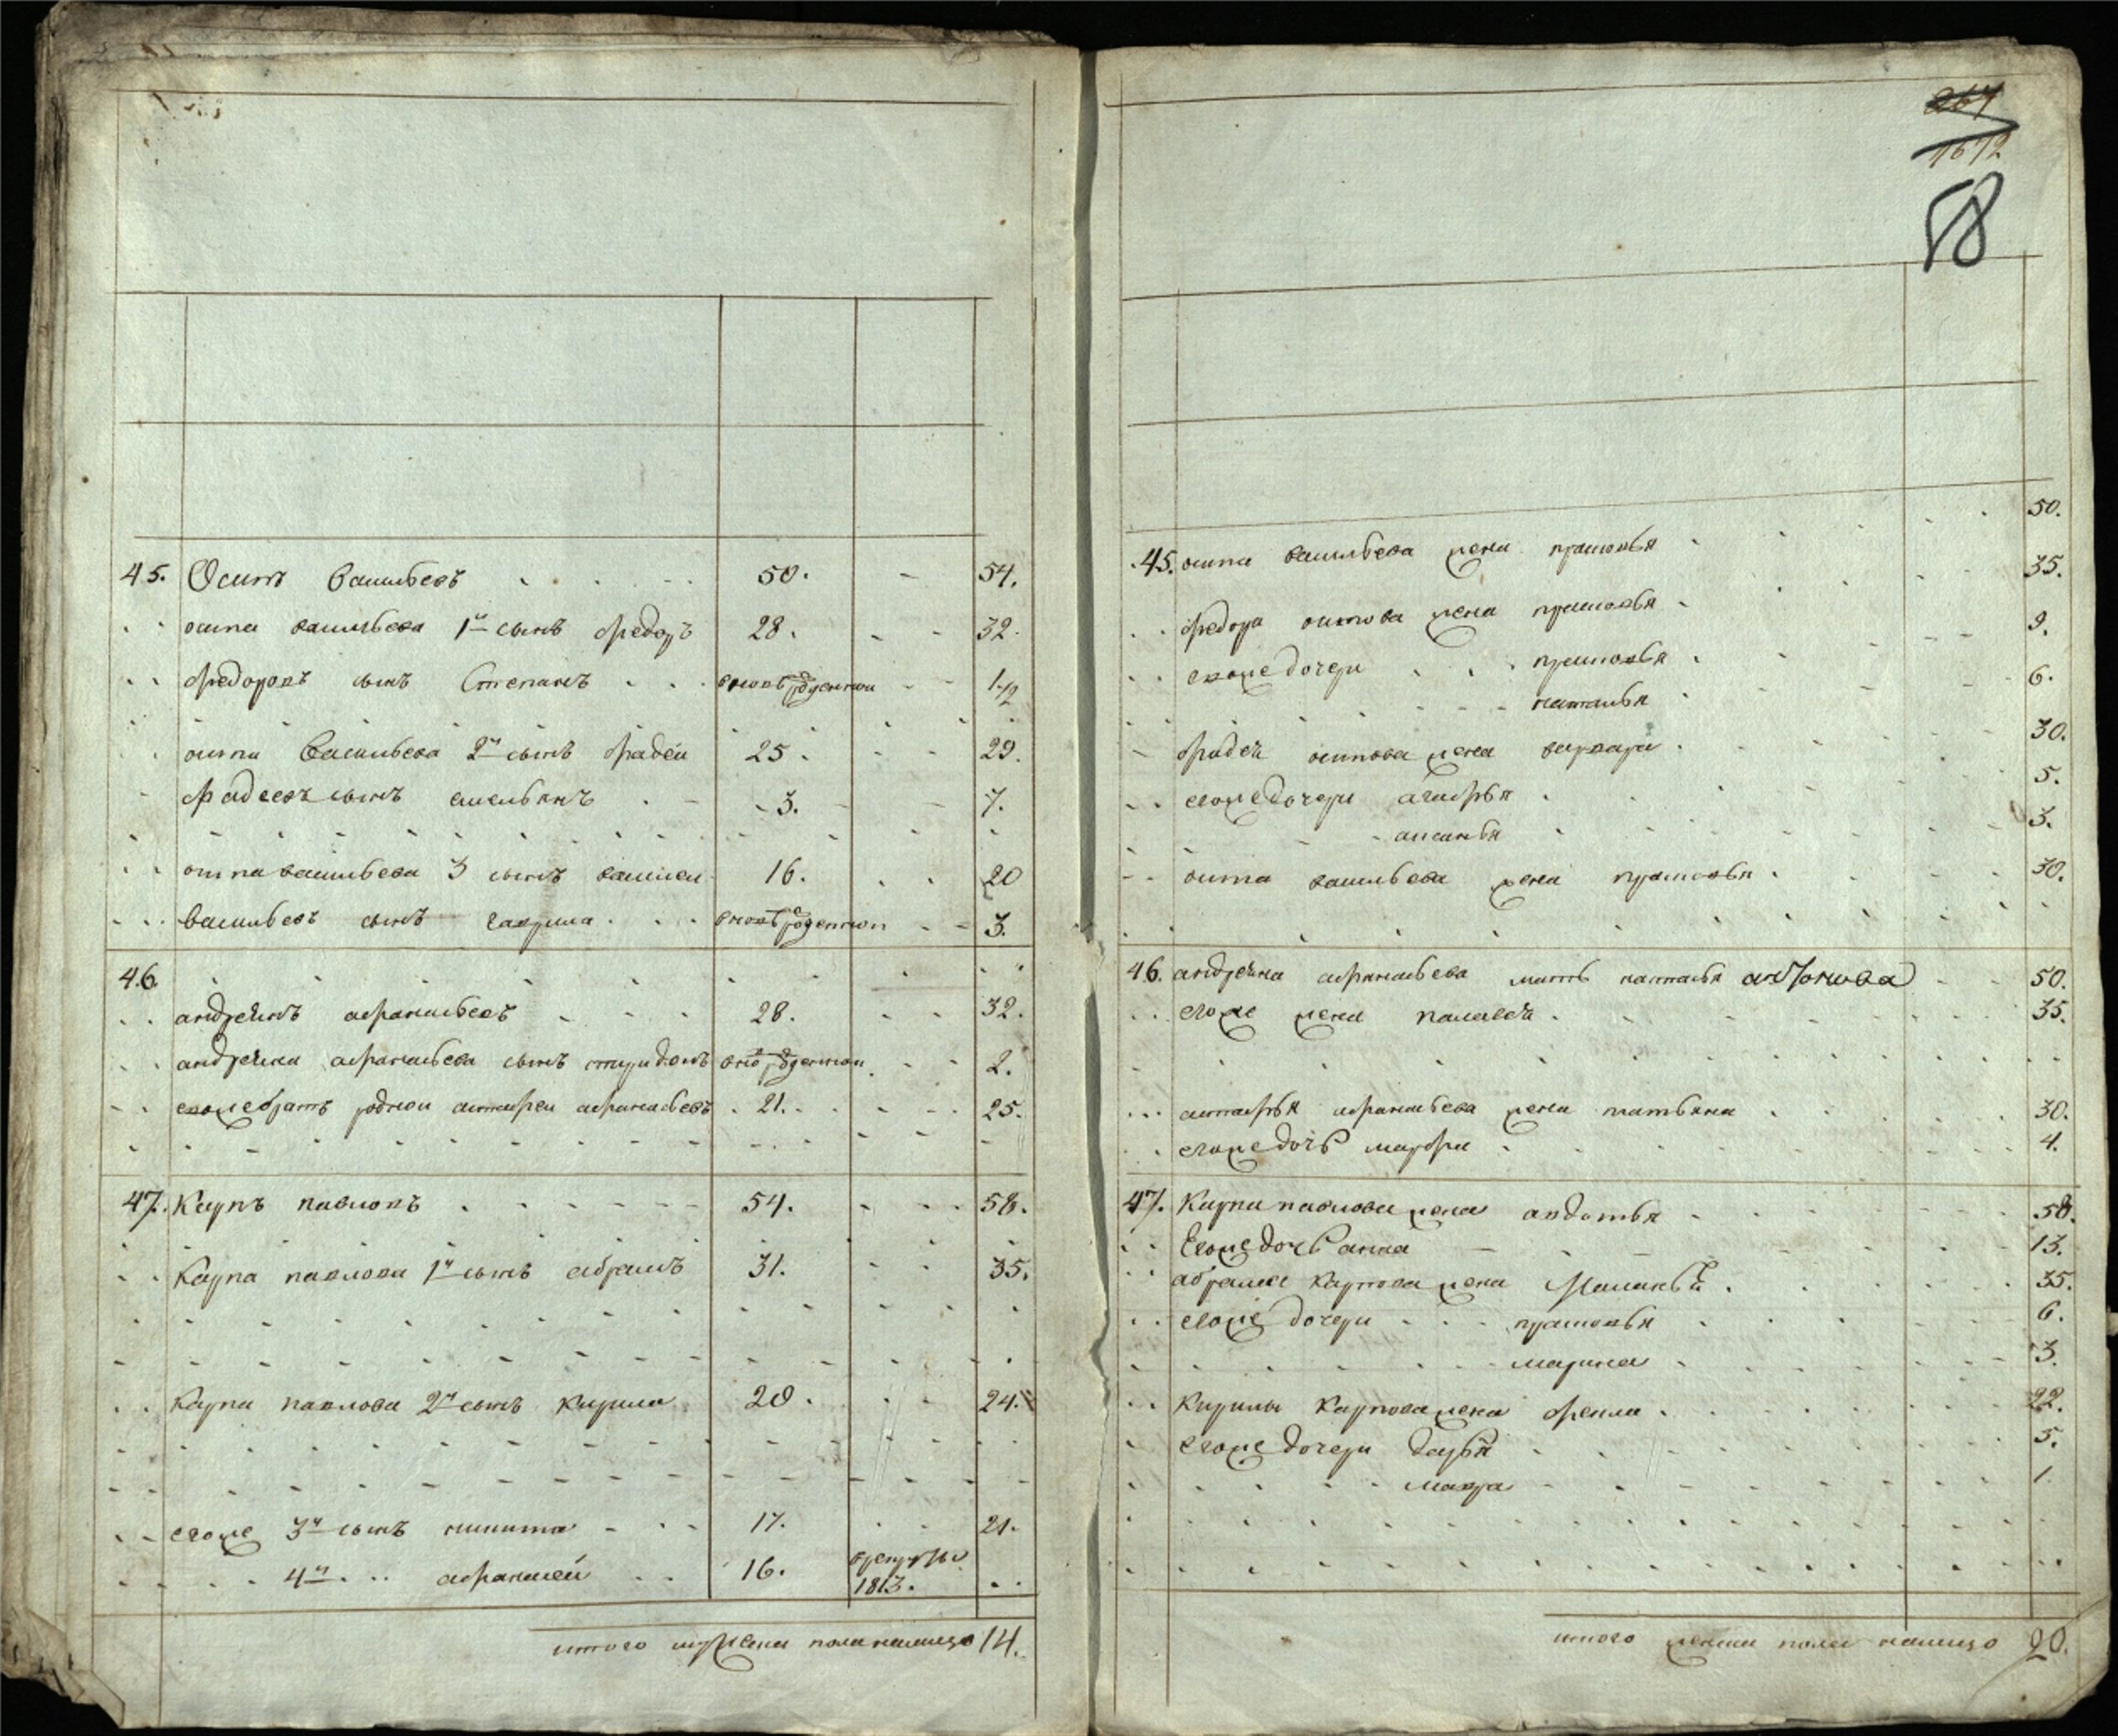 45. Осипъ Васильевъ 50. 54.
осипа васильева 1й сынъ федоръ 28. 32.
федоровъ сынъ Степанъ вновь рожденной 1/2
осипа Васильева 2й сынъ фадей 25. 29.
фадеевъ сынъ емельянъ 3. 7.
осипа васильева 3 сынъ василей 16. 20
васильевъ сынъ гаврила вновь рожденной 3.
46.
андреянъ афанасьевъ 28. 32.
андреяна афанасьева сынъ спиридонъ внов рожденной 2.
евоже братъ родной астафей афанасьевъ 21. 25.
47. Карпъ павловъ 54. 58.
Карпа павлова 1й сынъ абрамъ 31. 35.
Карпа павлова 2й сынъ Кирила 20. 24.
егоже 3й сынъ никита 17. 21.
4й афанасей 16. 1813.
итого мужеска пола налицо 14.
267
1612
58
45. осипа васильева жена прасковья 50.
федора осипова жена прасковья 35.
евоже дочери прасковья 9.
наталья 6.
фадея осипова жена варвара 30.
егоже дочери агафья 5.
аксинья 3.
осипа васильева жена прасковья 30.
46. андреяна афанасьева мать наталья антонова 50.
егоже жена палагея 35.
астафья афанасьева жена татьяна 30.
егоже дочь марфа 4.
47. Карпа павлова жена авдотья 58.
Егоже дочь анна 13.
абрама Карпова жена Маланья 35.
егоже дочери прасковья 6.
марина 3.
Кирилы Карпова жена фекла 22.
егоже дочери дарья 5.
мавра 1.
итого женска пола налицо 20.